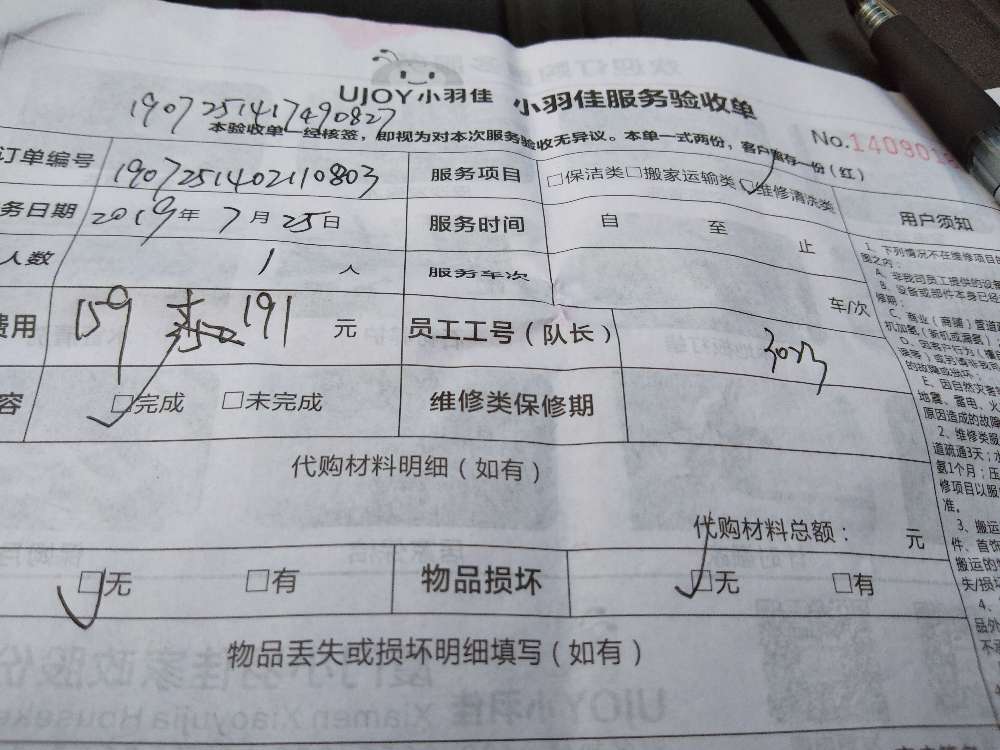 UJOY小羽佳 小羽佳服务验收单
1907251417490827
本验收单一经核签，即视为对本次服务验收无异议。本单一式两份，客户留存一份（红）
No.140901
订单编号 1907251402110803 服务项目 □保洁类□搬家运输类□维修清洗类
务日期 2019年7月25日 服务时间 自 至 止
人数 1 人 服务车次 车/次
费用 159 191 元 员工工号（队长） 3073
容 □完成 □未完成 维修类保修期
代购材料明细（如有）
代购材料总额： 元
□无 □有 物品损坏 □无 □有
物品丢失或损坏明细填写（如有）
用户须知
1、下列情况不在维修项目
围之内：
A、非我司员工提供的设备
B、设备或部件本身已经
修期；
C、商业（商铺）管道
机加氨（新机或漏氨）；
D、因客户行为
的故障或损坏；
E、因自然灾害
地震、雷电、火
原因造成的故障
2、维修类服
道疏通3天；水
氨1个月；压
修项目以服
准。
3、搬运
件、首饰
搬运的
失/损
4、
品外
不